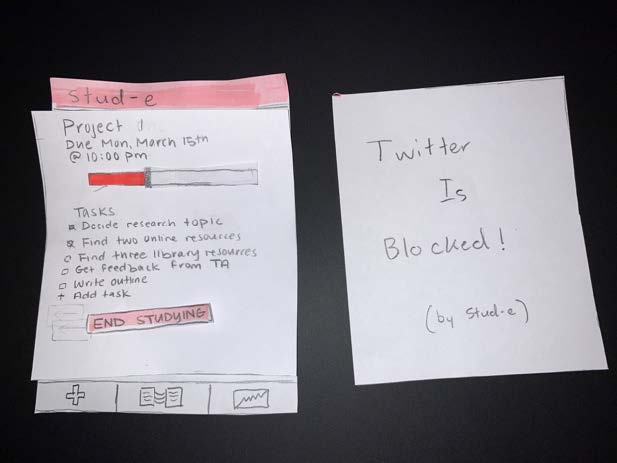 Stud-e
Project
Due Mon, March 15th
@ 10:00 pm
Tasks
Decide research topic
Find two online resources
Find three library resources
Get feedback from TA
Write outline
+ Add task
END STUDYING
Twitter
Is
Blocked!
(by Stud-e)